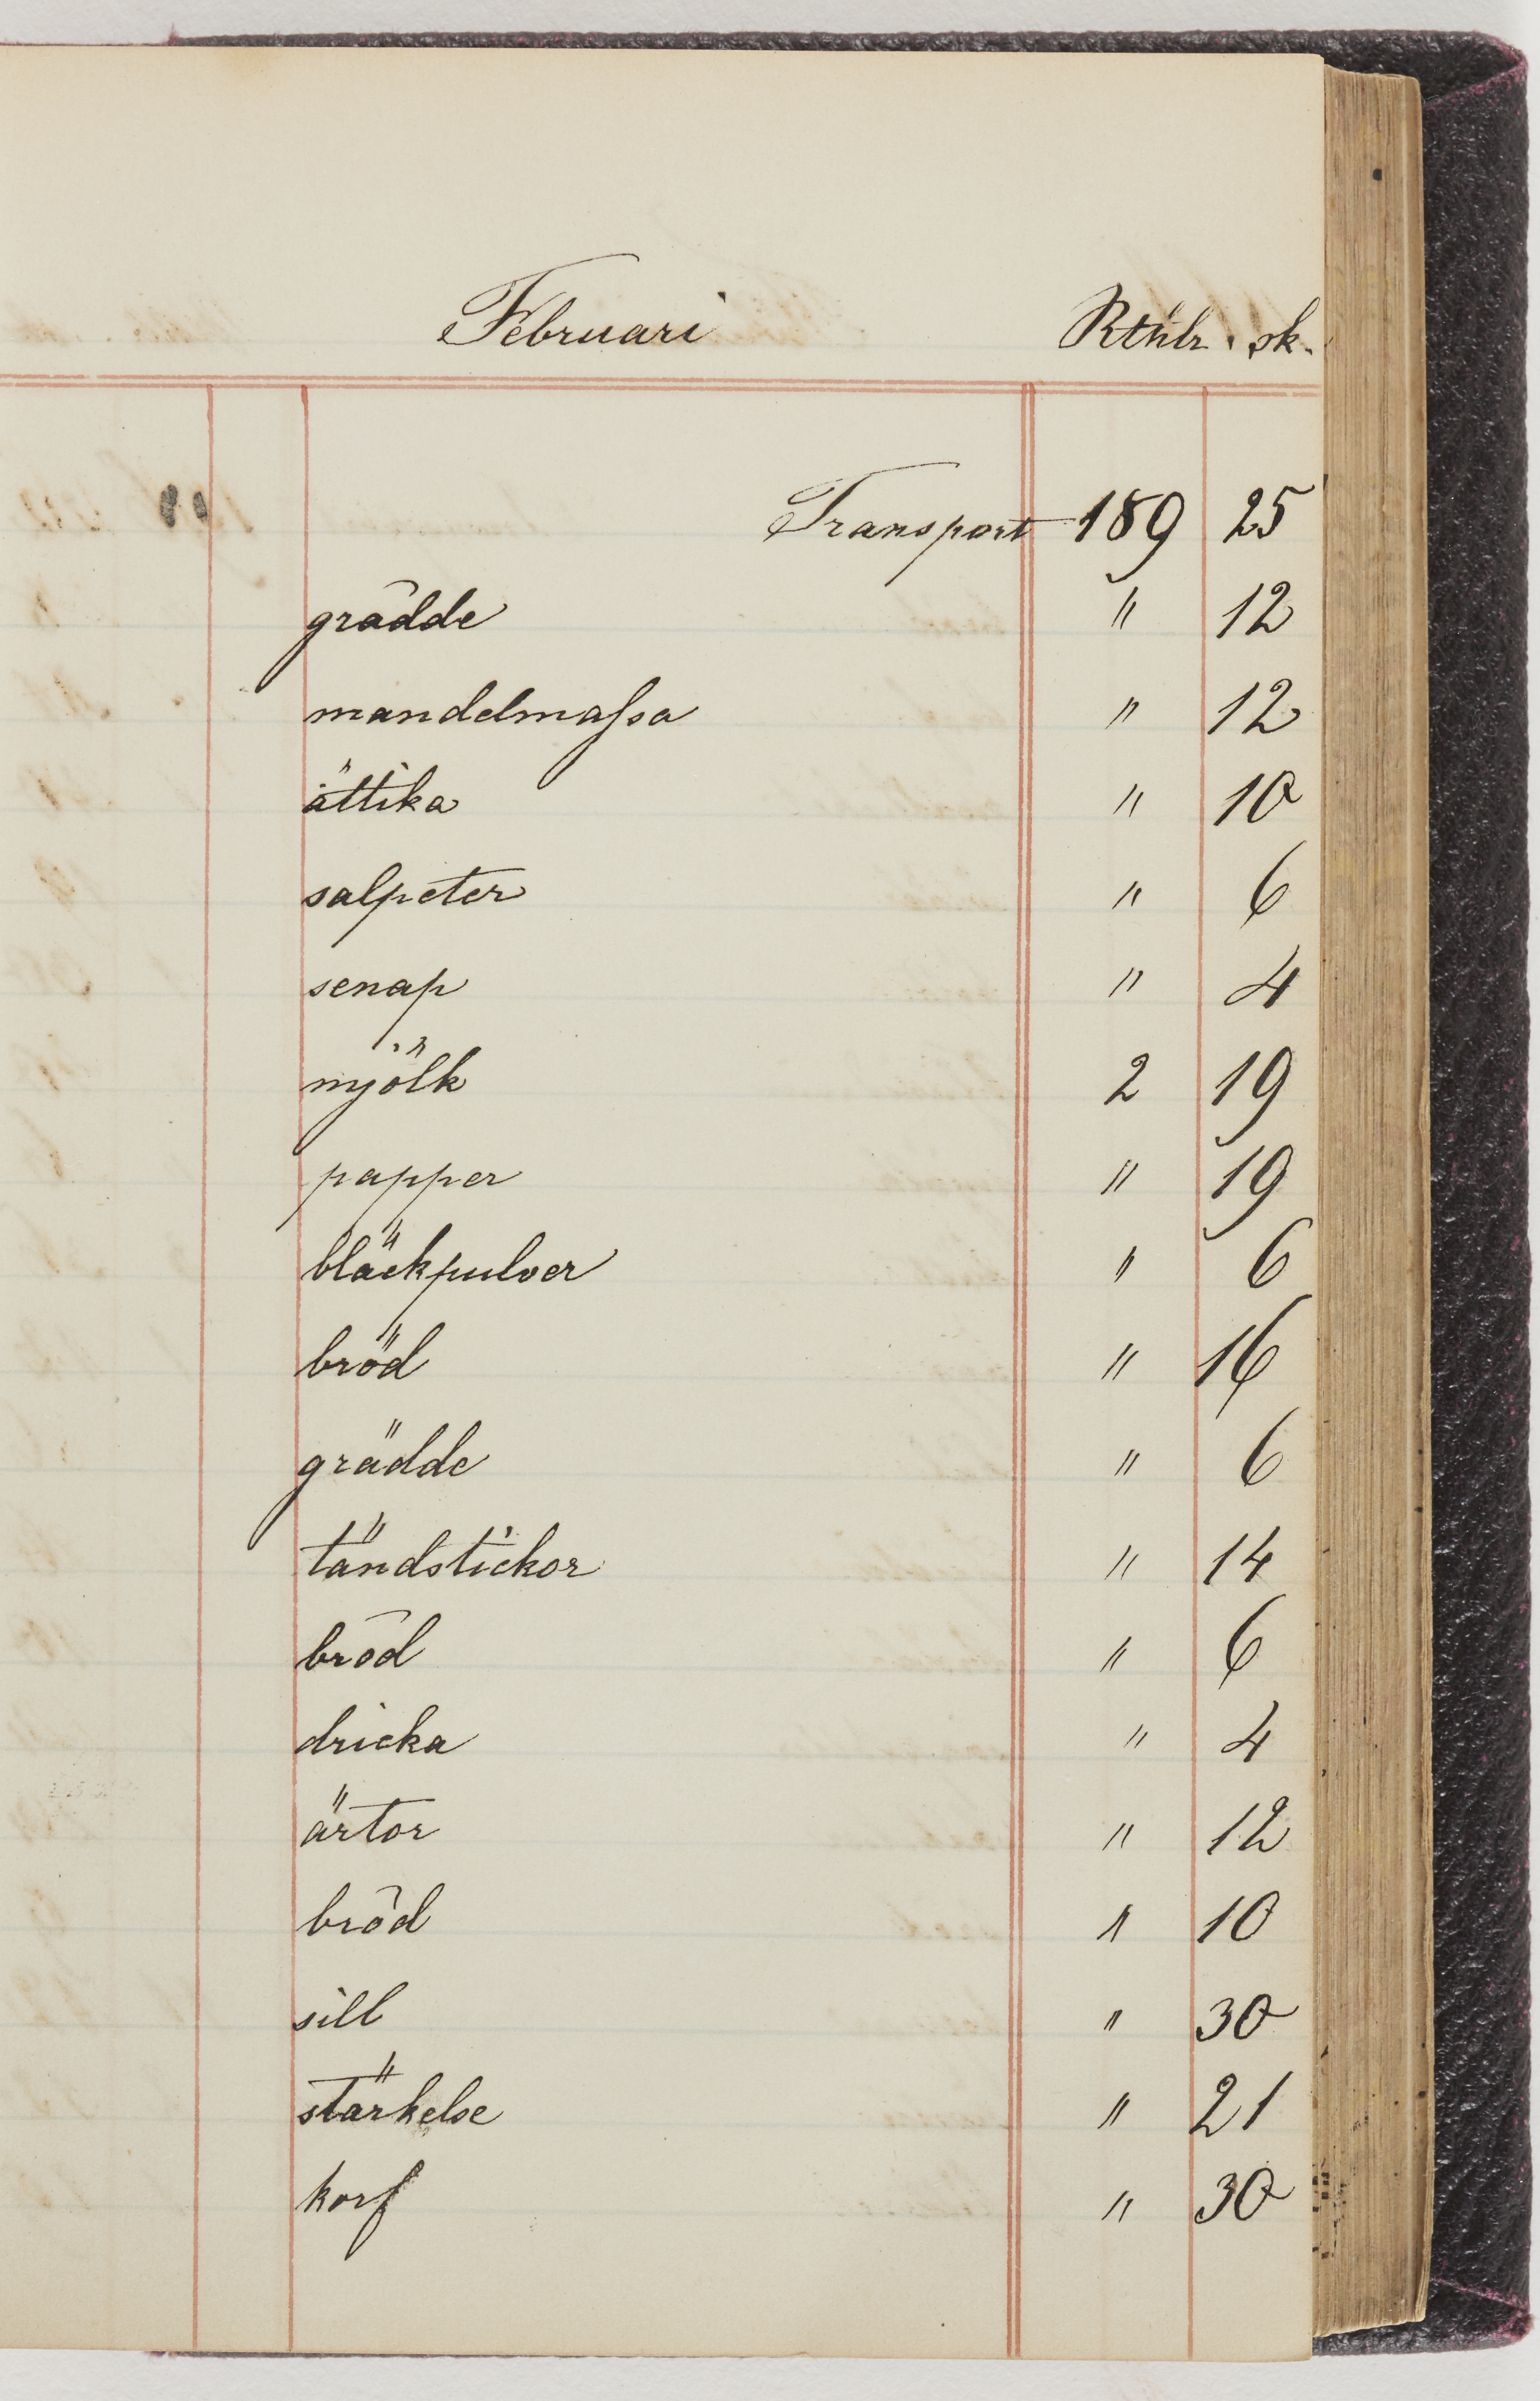 Februari Rthlr. sk.
Transport 189 25
grädde " 12
mandelmaſsa " 12
ättika " 10
salpeter " 6
senap " 4
mjölk 2 19
papper " 19
bläckpulver " 6
bröd " 16
grädde " 6
tändstickor " 14
bröd " 6
dricka " 4
ärtor " 12
bröd " 10
sill " 30
stärkelse " 21
korf " 30